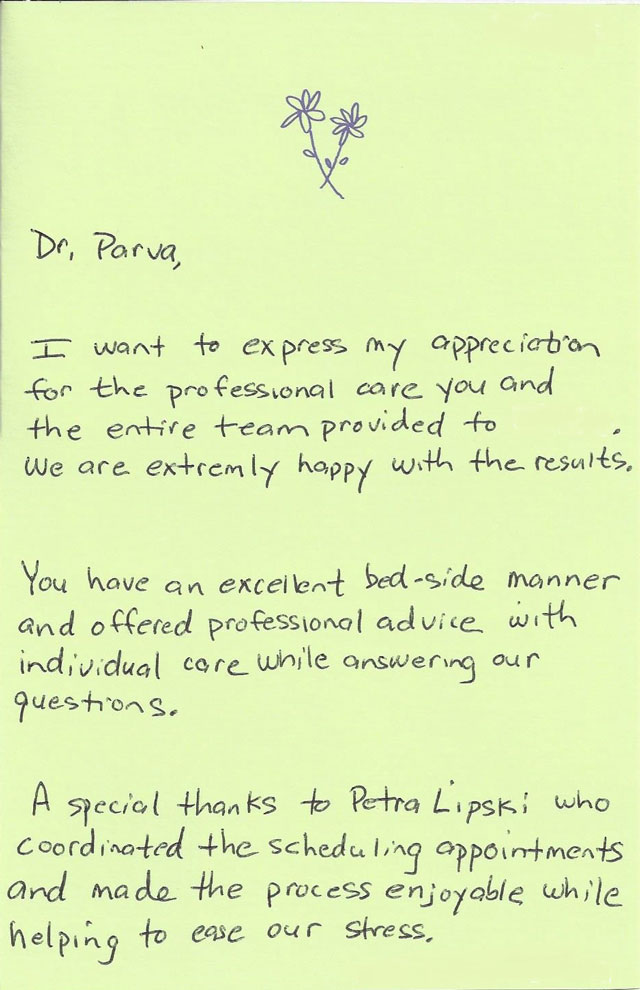 Dr. Parva,
I want to express my appreciation
for the professional care you and
the entire team provided to .
We are extremly happy with the results.
You have an excellent bed-side manner
and offered professional advice with
individual care while answering our
questions.
A special thanks to Petra Lipski who
coordinated the scheduling appointments
and made the process enjoyable while
helping to ease our stress.